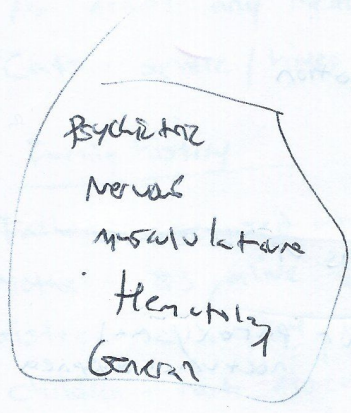 Psychiatric
Nervous
Muscululature
Hematology
General